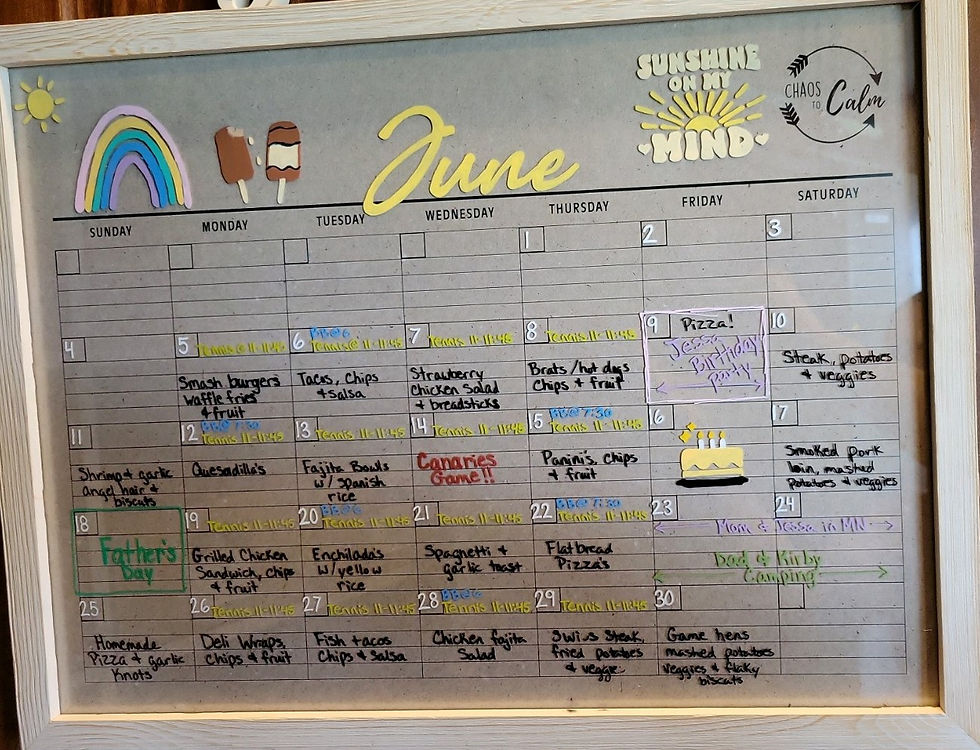 SUNSHINE
ON MY
MIND
CHAOS
TO Calm
June
SUNDAY MONDAY TUESDAY WEDNESDAY THURSDAY FRIDAY SATURDAY
1 2 3
4
5 Tennis @ 11-11:45
Smash burgers
waffle fries
& fruit
6 BB@6
Tennis@ 11-11:45
Tacos, chips
& salsa
7 Tennis 11-11:45
Strawberry
Chicken Salad
& breadsticks
8 Tennis 11-11:45
Brats /hot dogs
Chips & fruit
9 Pizza!
Jessa
Birthday
Party
10
Steak, potatoes
& veggies
11
Shrimp & garlic
angel hair &
biscuits
12 BB@ 7:30
Tennis 11-11:45
Quesadilla's
13 Tennis 11-11:45
Fajita Bowls
w/ spanish
rice
14 Tennis 11-11:45
Canaries
Game!!
15 BB@ 7:30
Tennis 11-11:45
Panini's, chips
& fruit
16
17
Smoked pork
loin, mashed
potatoes & veggies
18
Father's
Day
19 Tennis 11-11:45
Grilled Chicken
Sandwich, chips
& fruit
20 BB@6
Tennis 11-11:45
Enchilada's
w/yellow
rice
21 Tennis 11-11:45
Spaghetti &
garlic toast
22 BB@ 7:30
Tennis 11-11:45
Flatbread
Pizza's
23 24
Mom & Jessa in MN
Dad & Kirby
Camping
25
Homemade
Pizza & garlic
Knots
26 Tennis 11-11:45
Deli Wraps,
Chips & fruit
27 Tennis 11-11:45
Fish tacos
Chips & Salsa
28 BB@6
Tennis 11-11:45
Chicken fajita
Salad
29 Tennis 11-11:45
Steak,
fried potatoes
& veggie
30
Game hens
mashed potatoes
veggies & flaky
biscuits